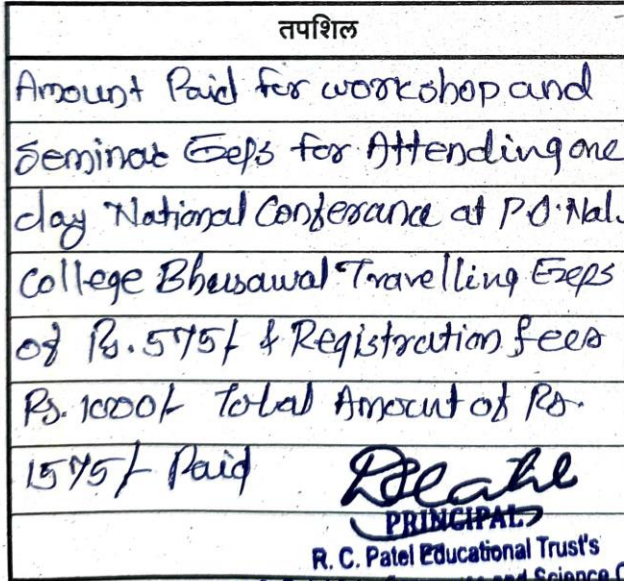 तपशिल
Amount Paid for workshop and
Seminar Exps for Attending one
day National Conferance at P.O. Nal.
College Bhusawal Travelling Exps
of Rs. 575/- & Registration fees
Rs. 1000/- Total Amount of Rs.
1575/- Paid
PRINCIPAL
R. C. Patel Educational Trust's
and Science C